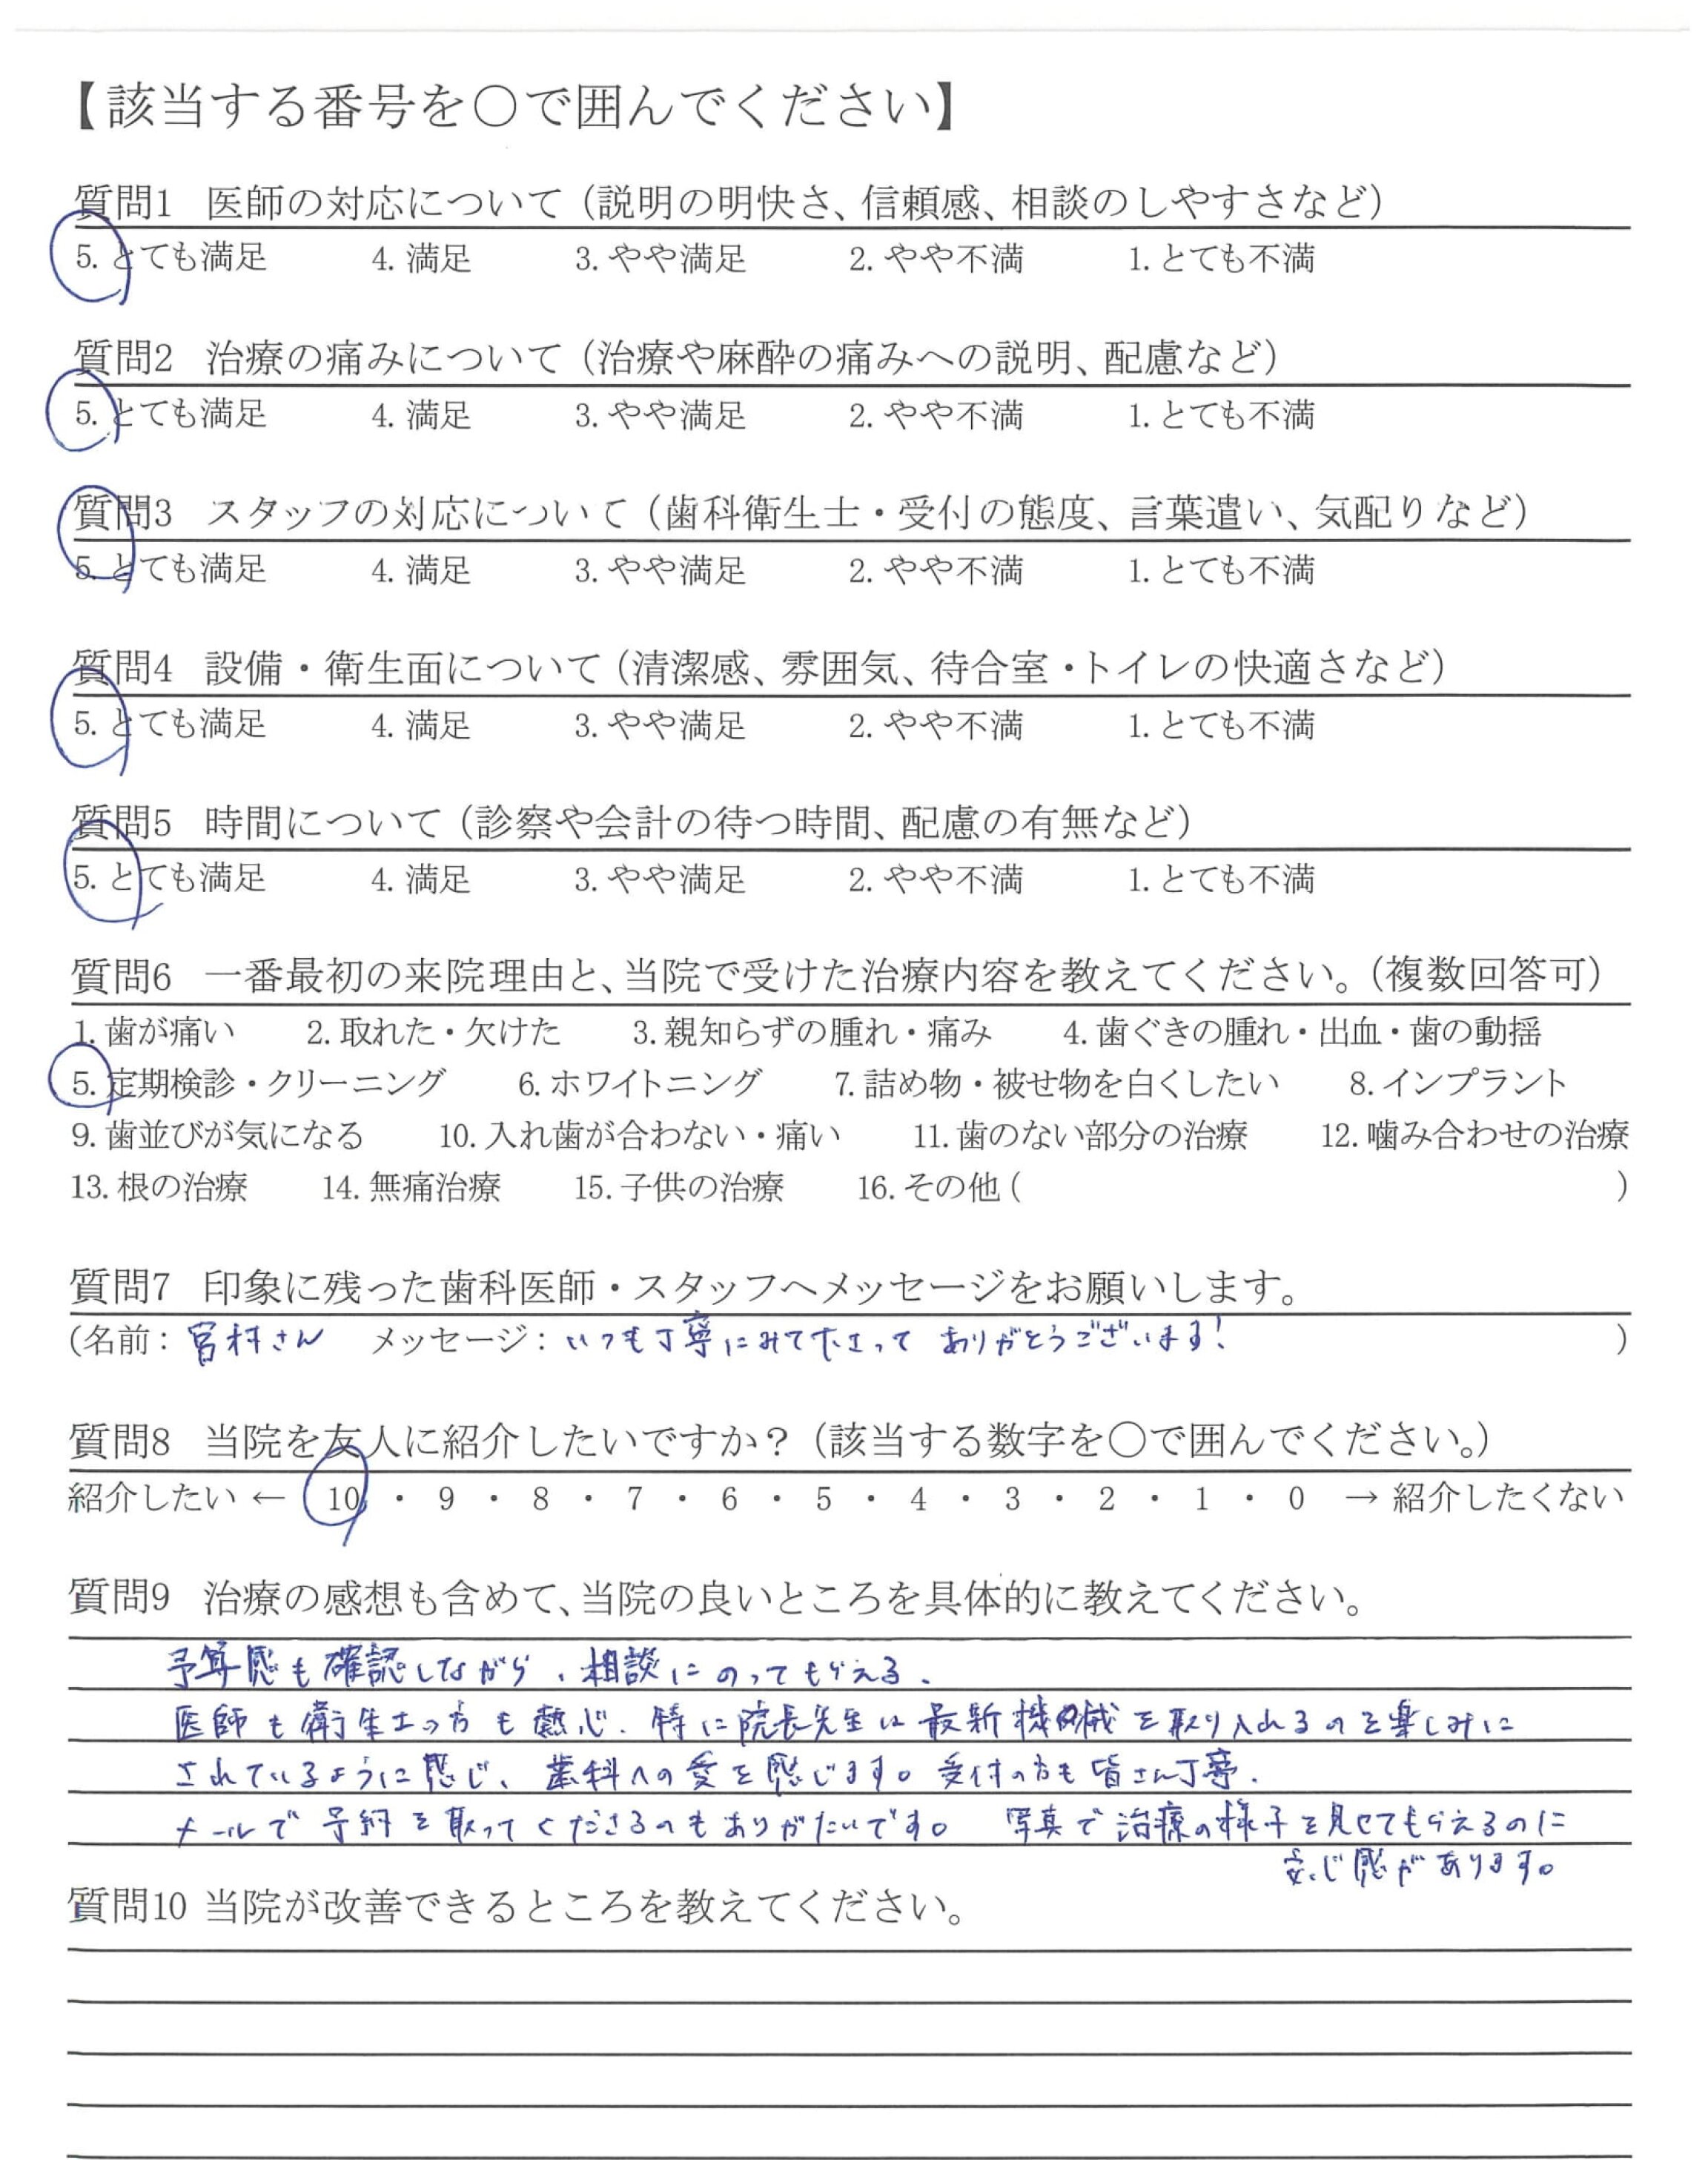 【該当する番号を○で囲んでください】
質問1 医師の対応について（説明の明快さ、信頼感、相談のしやすさなど）
5. とても満足 4. 満足 3. やや満足 2. やや不満 1. とても不満
質問2 治療の痛みについて（治療や麻酔の痛みへの説明、配慮など）
5. とても満足 4. 満足 3. やや満足 2. やや不満 1. とても不満
質問3 スタッフの対応について（歯科衛生士・受付の態度、言葉遣い、気配りなど）
5. とても満足 4. 満足 3. やや満足 2. やや不満 1. とても不満
質問4 設備・衛生面について（清潔感、雰囲気、待合室・トイレの快適さなど）
5. とても満足 4. 満足 3. やや満足 2. やや不満 1. とても不満
質問5 時間について（診察や会計の待つ時間、配慮の有無など）
5. とても満足 4. 満足 3. やや満足 2. やや不満 1. とても不満
質問6 一番最初の来院理由と、当院で受けた治療内容を教えてください。（複数回答可）
1. 歯が痛い 2. 取れた・欠けた 3. 親知らずの腫れ・痛み 4. 歯ぐきの腫れ・出血・歯の動揺
5. 定期検診・クリーニング 6. ホワイトニング 7. 詰め物・被せ物を白くしたい 8. インプラント
9. 歯並びが気になる 10. 入れ歯が合わない・痛い 11. 歯のない部分の治療 12. 噛み合わせの治療
13. 根の治療 14. 無痛治療 15. 子供の治療 16. その他（ ）
質問7 印象に残った歯科医師・スタッフへメッセージをお願いします。
（名前：宮村さん メッセージ：いつも丁寧にみて下さって ありがとうございます！ ）
質問8 当院を友人に紹介したいですか？（該当する数字を○で囲んでください。）
紹介したい ← 10 ・ 9 ・ 8 ・ 7 ・ 6 ・ 5 ・ 4 ・ 3 ・ 2 ・ 1 ・ 0 → 紹介したくない
質問9 治療の感想も含めて、当院の良いところを具体的に教えてください。
予算感も確認しながら、相談にのってもらえる。
医師も衛生士の方も熱心。特に院長先生は最新機械を取り入れるのを楽しみに
されているように感じ、歯科への愛を感じます。受付の方も皆さん丁寧。
メールで予約を取ってくださるのもありがたいです。 写真で治療の様子を見せてもらえるのに
安心感があります。
質問10 当院が改善できるところを教えてください。